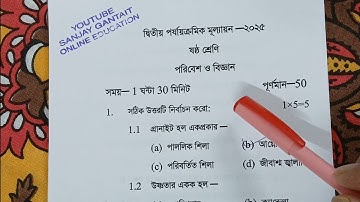 YOUTUBE
SANJAY GANTAIT
ONLINE EDUCATION
দ্বিতীয় পর্যায়ক্রমিক মূল্যায়ন—২০২৫
ষষ্ঠ শ্রেণি
পরিবেশ ও বিজ্ঞান
সময়— 1 ঘন্টা 30 মিনিট পূর্ণমান—50
1. সঠিক উত্তরটি নির্বাচন করো: 1×5=5
1.1 গ্রানাইট হল একপ্রকার—
(a) পাললিক শিলা (b)
(c) পরিবর্তিত শিলা (d) জীবাশ্ম
1.2 উষ্ণতার একক হল—